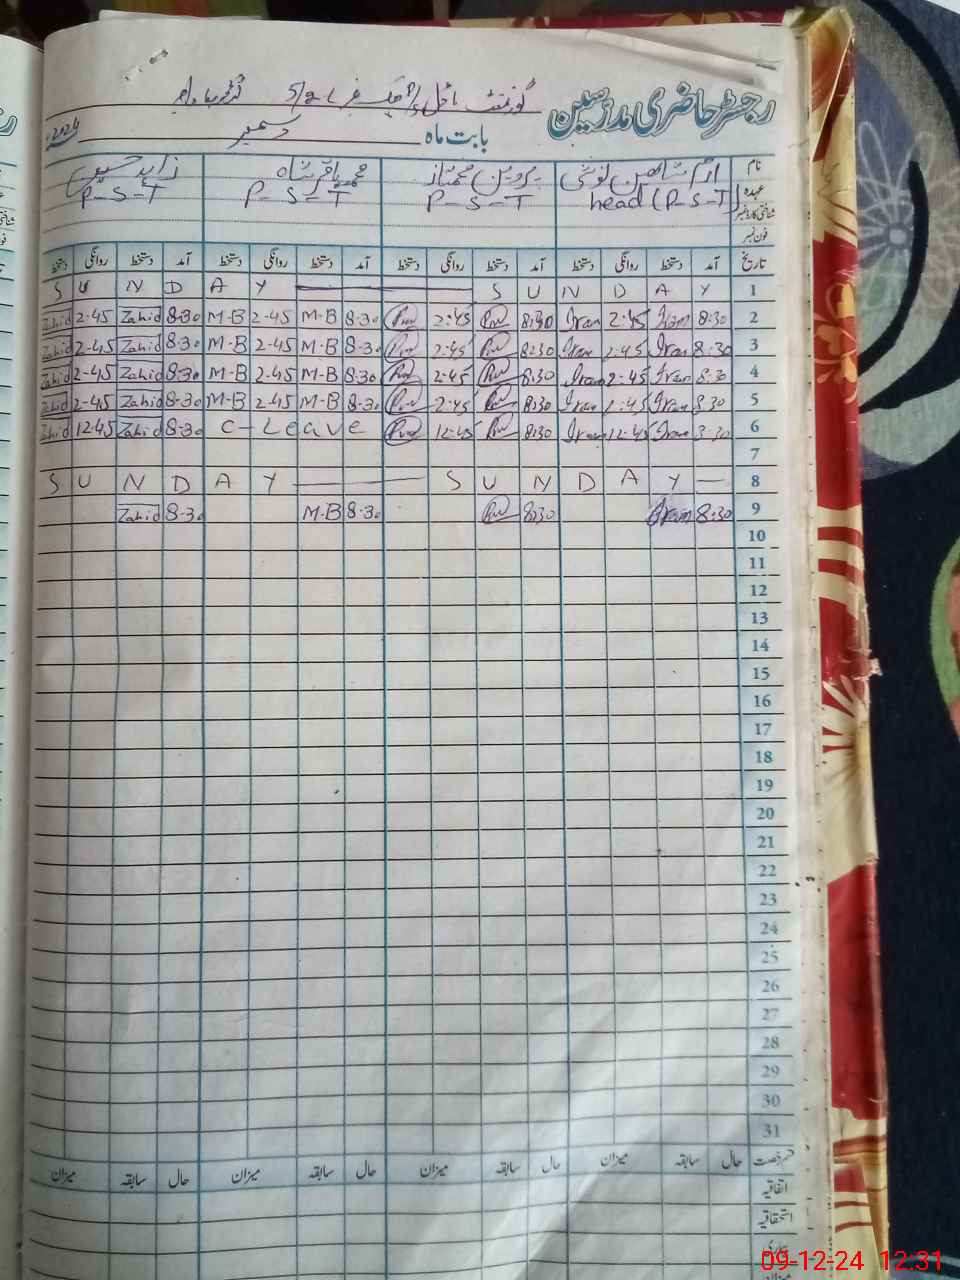 رجسٹر حاضری مدرسین گورنمنٹ ماڈل
بابت ماہ دسمبر 2024ء
نام ارم شاھین پروین ممتاز محمد باقر شاہ زاہد حسین
عہدہ head (P-S-T) P-S-T P-S-T P-S-T
شناختی کارڈ نمبر
فون نمبر
تاریخ آمد دستخط روانگی دستخط آمد دستخط روانگی دستخط آمد دستخط روانگی دستخط آمد دستخط روانگی دستخط
S U N D A Y S U N D A Y 1
Zahid 2-45 Zahid 8-30 M-B 2-45 M-B 8-30 2:45 8:30 Iram 2:45 Iram 8:30 2
Zahid 2-45 Zahid 8-30 M-B 2-45 M-B 8-30 2:45 8:30 Iram 2:45 Iram 8:30 3
Zahid 2-45 Zahid 8-30 M-B 2-45 M-B 8-30 2:45 8:30 Iram 2:45 Iram 8:30 4
Zahid 2-45 Zahid 8-30 M-B 2-45 M-B 8-30 2:45 8:30 Iram 2:45 Iram 8:30 5
Zahid 12-45 Zahid 8-30 C-Leave 12-45 8:30 Iram 12-45 Iram 8:30 6
7
S U N D A Y S U N D A Y 8
Zahid 8-30 M-B 8-30 8:30 Iram 8:30 9
10
11
12
13
14
15
16
17
18
19
20
21
22
23
24
25
26
27
28
29
30
31
حال سابقہ میزان حال سابقہ میزان حال سابقہ میزان حال سابقہ میزان
اتفاقیہ
استحقاقیہ
09-12-24 12:31